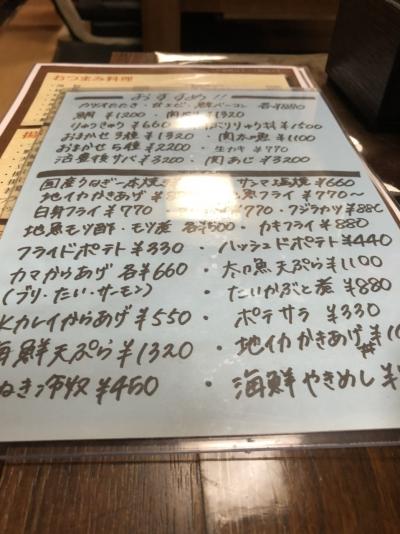 おつまみ料理
おすすめ!!
・甘エビ・ 各¥880
鯛 ¥1200 ・関 ¥1320
りゅうきゅう ¥660 ぶりりゅう丼 ¥1500
おまかせ3種 ¥1320 ・関太刀魚 ¥1100
おまかせ5種 ¥2200 ・生カキ ¥770
活豊後サバ ¥3200 ・関あじ ¥3200
国産うなぎ一本焼き サンマ塩焼 ¥660
地イカかきあげ 魚フライ ¥770〜
白身フライ ¥770 ¥770・フジラカツ ¥880
地魚モツ酢・モツ煮 各¥500・カキフライ ¥880
フライドポテト ¥330 ・ハッシュドポテト ¥440
カマからあげ 各¥660 ・太刀魚天ぷら ¥1100
(ブリ・たい・サーモン) ・たいかぶと煮 ¥880
水カレイからあげ ¥550 ・ポテサラ ¥330
海鮮天ぷら ¥1320 ・地イカかきあげ丼
ねぎ冷奴 ¥450 ・海鮮やきめし